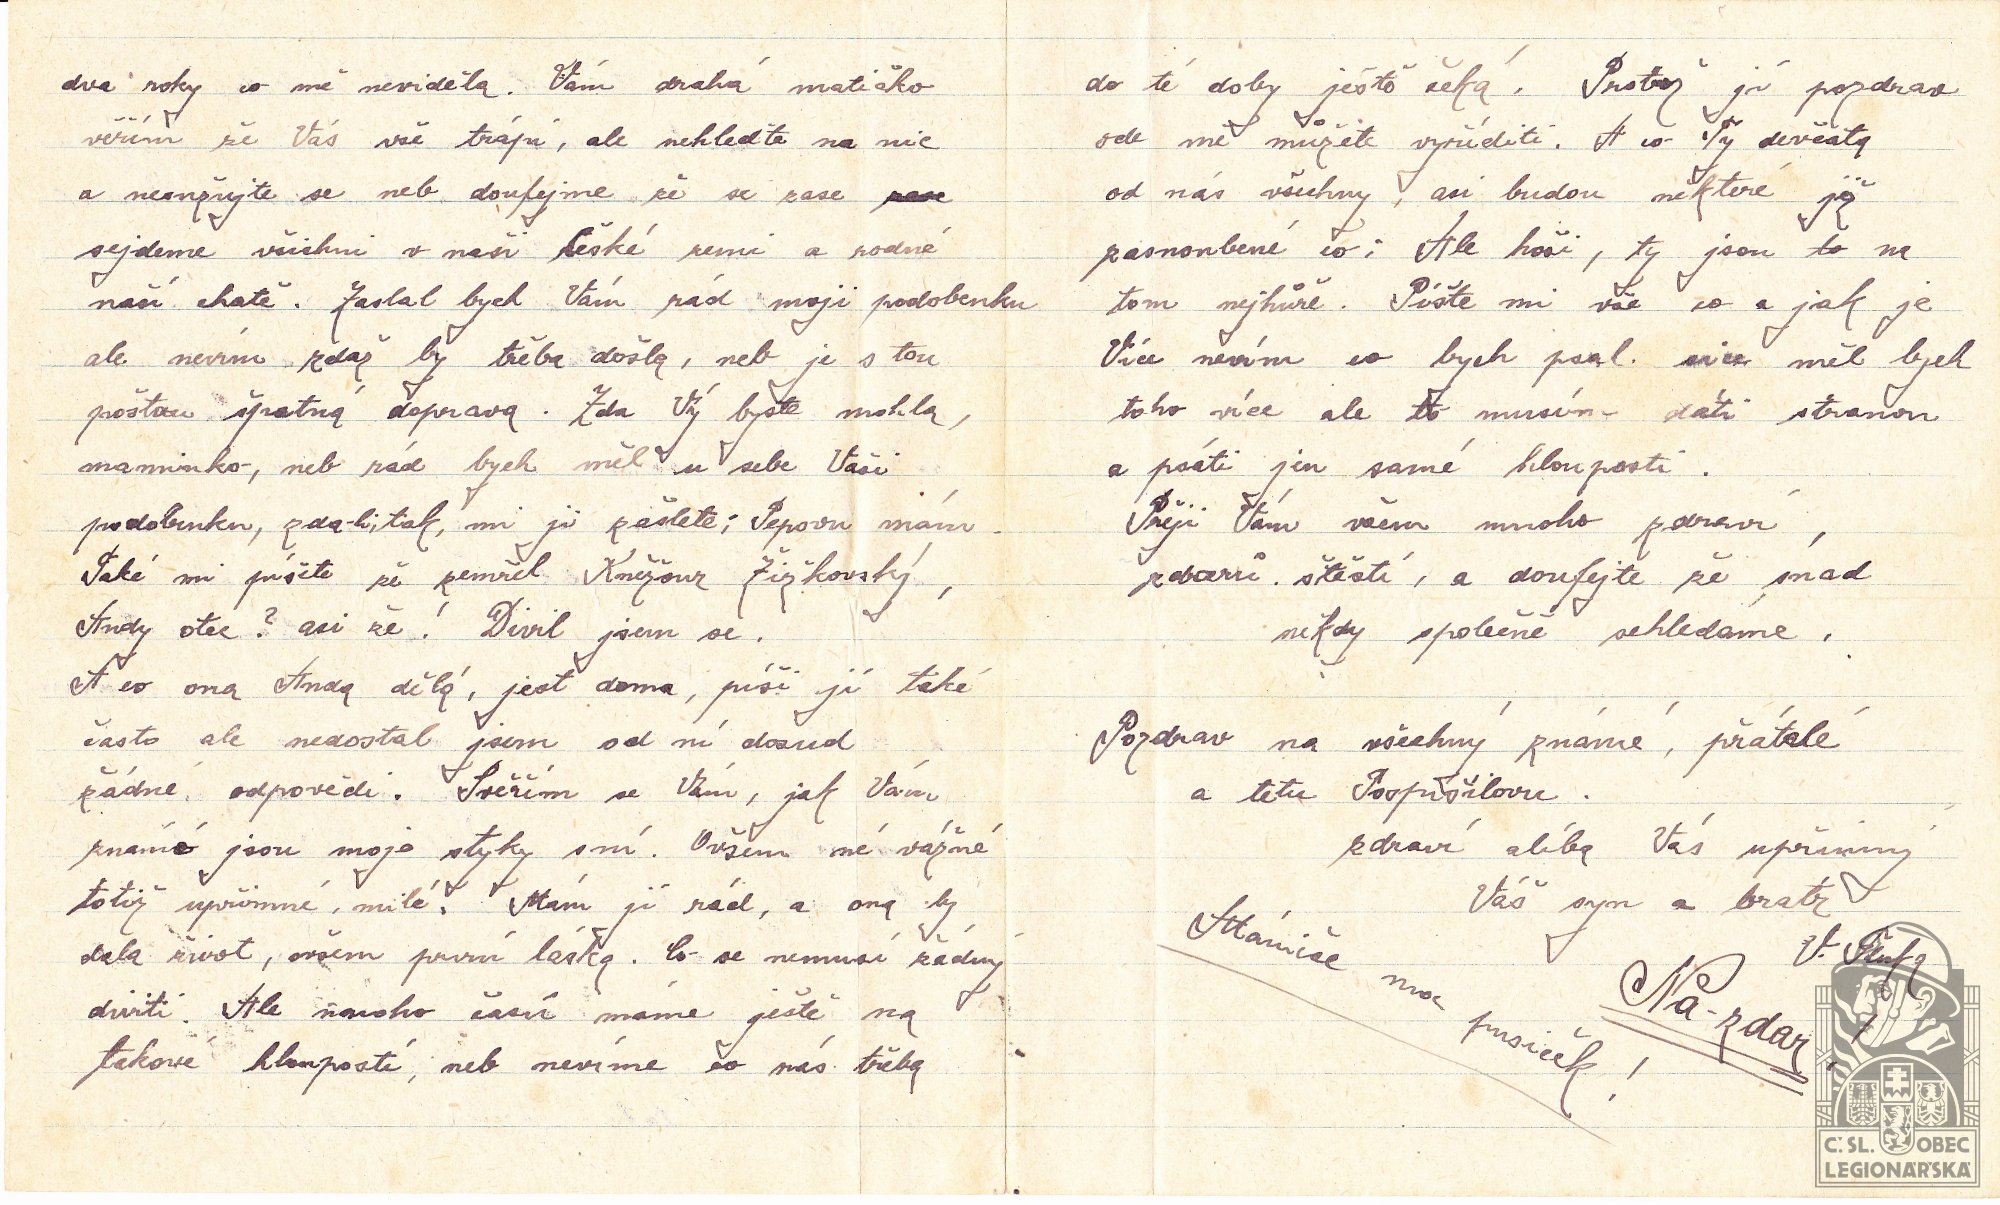 dva roky co mě neviděla. Vám drahá matičko
věřím že Vás vše trápí, ale nehleďte na nic
a neonzujte se neb doufejme že se zase zase
sejdeme všichni v naší české zemi a rodné
naší chatě. Zaslal bych Vám rád moji podobenku
ale nevím zdaž by třeba došla, neb je s tou
poštou špatná doprava. Zda Vy byste mohla,
maminko, neb rád bych měl u sebe Vaši
podobenku, zda-li, tak, mi ji zašlete; Pepovu mám
Také mi píšete že zemřel Kněžour Žižkovský,
Andy otec? asi že! Divil jsem se.
A co ona Anda dělá, jest doma, píši jí také
často ale nedostal jsem od ní dosud
žádné odpovědi. Svěřím se Vám, jak Vám
známé jsou moje styky s ní. Ovšem né vážné
totiž upřímné, milé. Mám jí rád, a ona by
dala život, ovšem první láska. Co se nemusí žádný
diviti. Ale mnoho časů máme ještě na
takové hlouposti, neb nevíme co nás třeba
do té doby ještě čeká. Protož jí pozdrav
ode mě můžete vyříditi. A co Ty děvčata
od nás všechny, asi budou některé již
zasnoubené co; Ale hoši, ty jsou to na
tom nejhůře. Pište mi vše co a jak je
Více nevím co bych psal. více měl bych
toho více ale to musím dáti stranou
a psáti jen samé hlouposti.
Přeji Vám všem mnoho zdraví,
zdaru. štěstí, a doufejte že snad
někdy společně sehledáme.
Pozdrav na všechny známé, přátelé
a tetu Pospíšilovu.
zdraví a líbá Vás upřímný
Váš syn a bratr
V.
Mámiče moc pusiček!
Na-zdar!
Č.SL. OBEC
LEGIONÁŘSKÁ